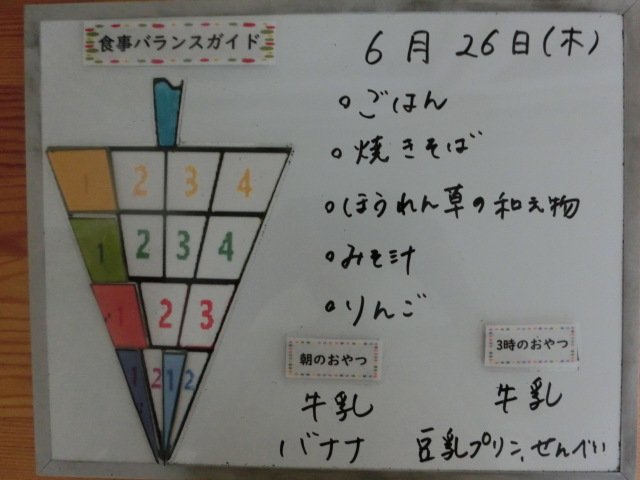 食事バランスガイド
6月26日(木)
○ごはん
○焼きそば
○ほうれん草の和え物
○みそ汁
○りんご
1 2 3 4
1 2 3 4
1 2 3
1 2 1 2
朝のおやつ
牛乳
バナナ
3時のおやつ
牛乳
豆乳プリン、せんべい